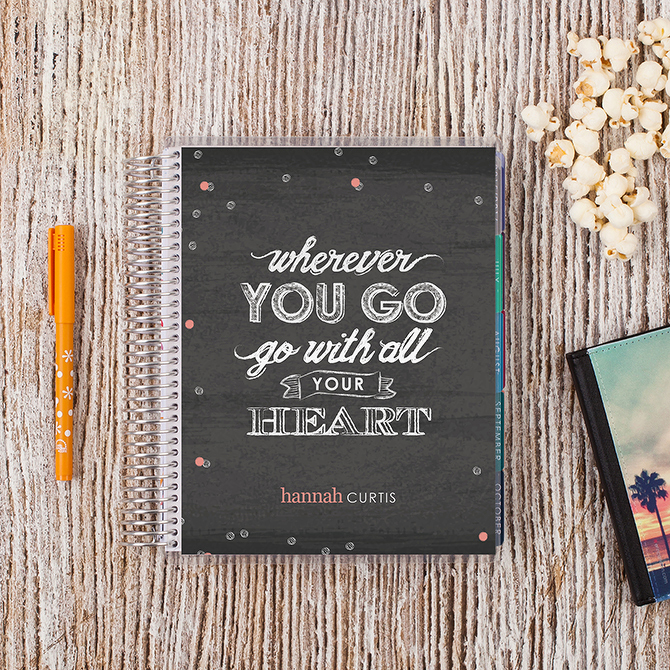 wherever
YOU GO
go with all
YOUR
HEART
hannah CURTIS
JULY
AUGUST
SEPTEMBER
OCTOBER